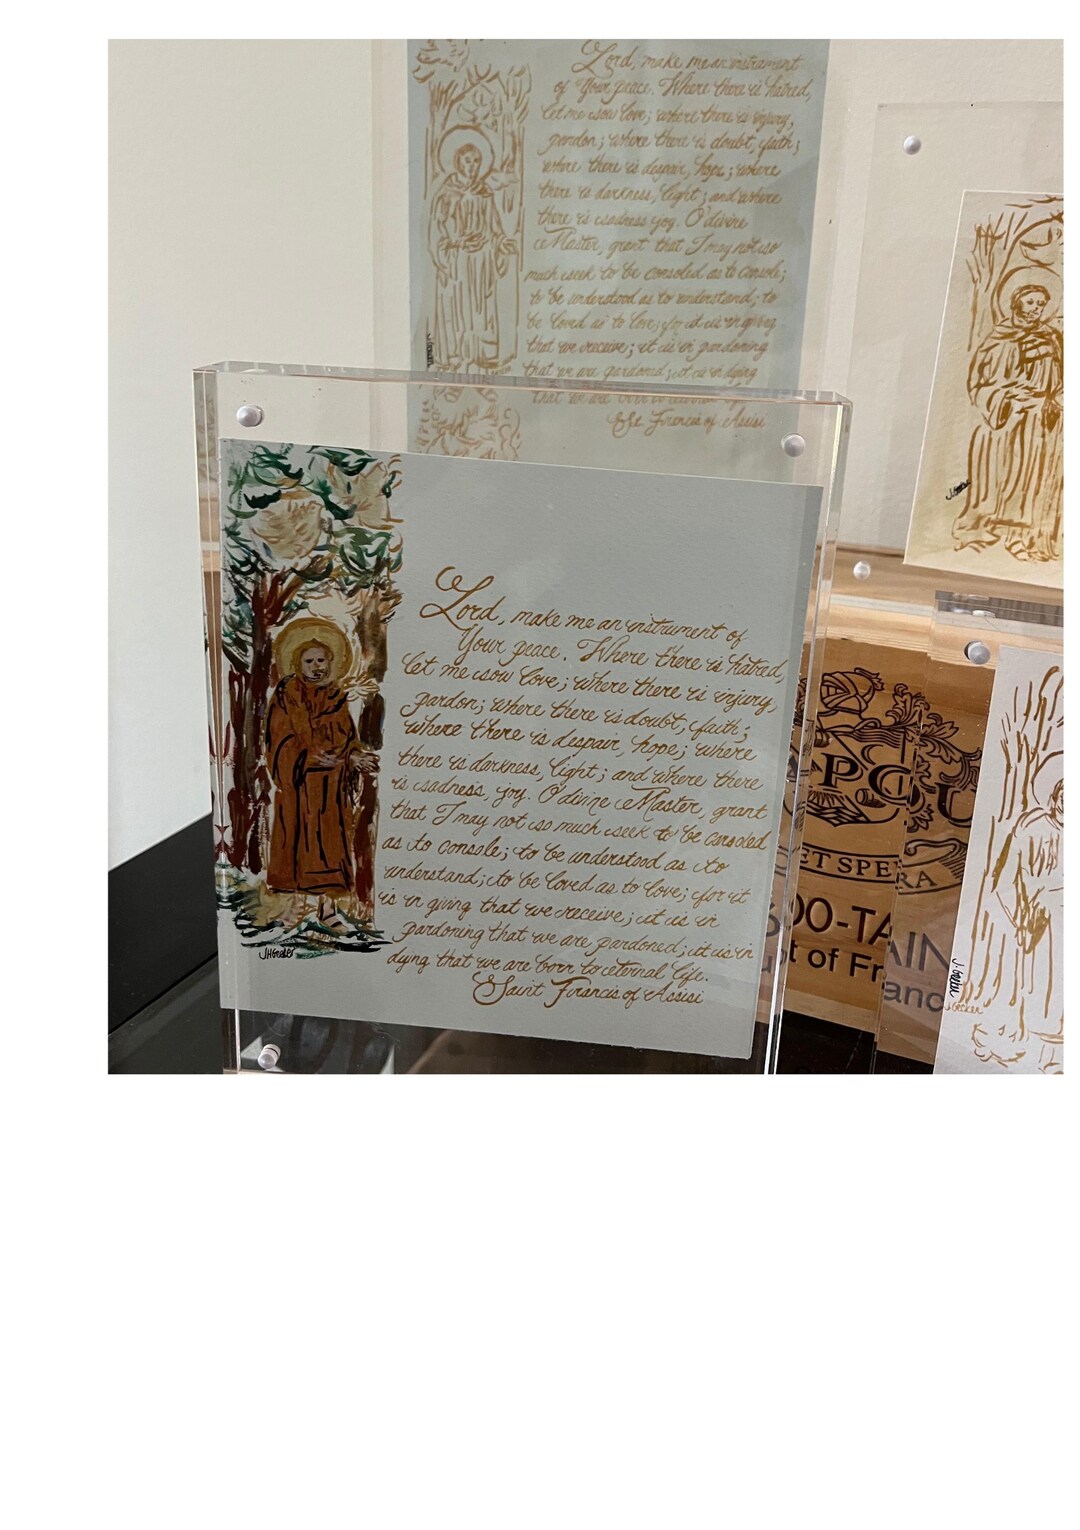 Lord, make me an instrument
of Your peace. Where there is hatred,
let me sow love; where there is injury,
pardon; where there is doubt, faith;
where there is despair, hope; where
there is darkness, light; and where
there is sadness, joy. O' divine
Master, grant that I may not so
much seek to be consoled as to console;
to be understood as to understand; to
be loved as to love; for it is in giving
that we receive; it is in pardoning
that we are pardoned; it is in dying
that we are born to eternal
St. Francis of Assisi
Lord, make me an instrument of
Your peace. Where there is hatred,
let me sow love; where there is injury,
pardon; where there is doubt, faith;
where there is despair, hope; where
there is darkness, light; and where there
is sadness, joy. O' divine Master, grant
that I may not so much seek to be consoled
as to console; to be understood as to
understand; to be loved as to love; for it
is in giving that we receive; it is in
pardoning that we are pardoned; it is in
dying that we are born to eternal life.
Saint Francis of Assisi
APCU
ET SPE RA
600-TAIN
of Franc
J. Gecker